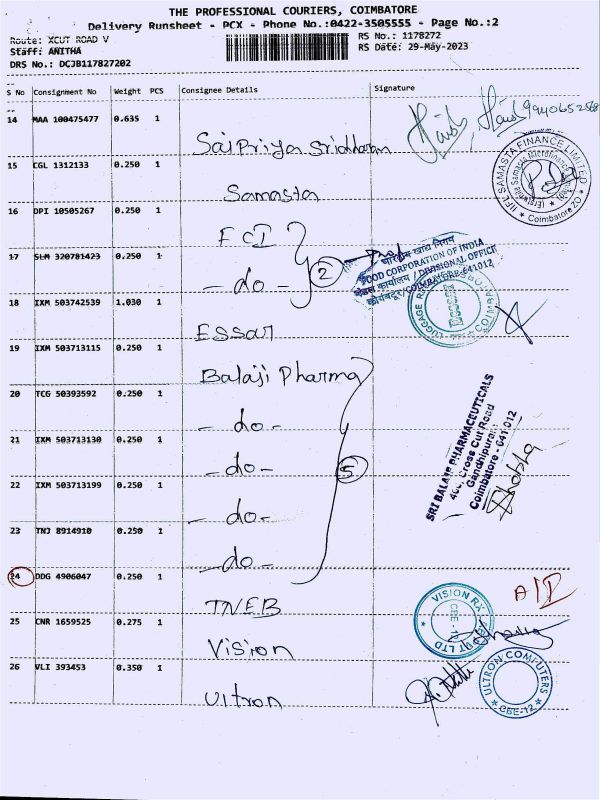 THE PROFESSIONAL COURIERS, COIMBATORE
Delivery Runsheet - PCX - Phone No.:0422-3505555 - Page No.:2
Route: XCUT ROAD V
RS No.: 1178272
Staff: ANITHA
RS Date: 29-May-2023
DRS No.: DCJB117827202
S No Consignment No Weight PCS Consignee Details Signature
14 MAA 100475477 0.635 1 Sai Priya Sridharan
15 CGL 1312133 0.250 1 Samasta
IIFL SAMASTA FINANCE LIMITED
Coimbatore ZO
16 DPI 10505267 0.250 1 FCI
17 SLM 320781423 0.250 1 - do - 2
भारतीय खाद्य निगम
FOOD CORPORATION OF INDIA
मंडल कार्यालय / DIVISIONAL OFFICE
कोयंबटूर/COIMBATORE-641012
18 IXM 503742539 1.030 1 Essar
19 IXM 503713115 0.250 1 Balaji Pharma
20 TCG 50393592 0.250 1 - do -
21 IXM 503713130 0.250 1 - do - 5
22 IXM 503713199 0.250 1 - do -
23 TNJ 8914910 0.250 1 - do -
SRI BALAJI PHARMACEUTICALS
Cross Cut Road
Gandhipuram
Coimbatore - 641 012
Shobha
24 DDG 4906047 0.250 1 TNEB
25 CNR 1659525 0.275 1 Vision
VISION RX
CBE - 12
PVT LTD
26 VLI 393453 0.350 1 Ultron
ULTRON COMPUTERS
CBE-12